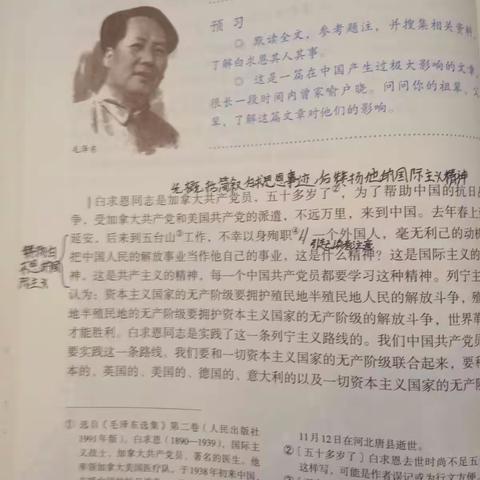 预习
◎ 默读全文，参考题注，并搜集相关资料，
了解白求恩其人其事。
◎ 这是一篇在中国产生过极大影响的文章，
很长一段时间内曾家喻户晓。问问你的祖辈、父
辈，了解这篇文章对他们的影响。
毛泽东
先概括简叙白求恩事迹，后赞扬他的国际主义精神
白求恩同志是加拿大共产党员，五十多岁了②，为了帮助中国的抗日
争，受加拿大共产党和美国共产党的派遣，不远万里，来到中国。去年春上
延安，后来到五台山③工作，不幸以身殉职④。一个外国人，毫无利己的动机
引起读者注意
把中国人民的解放事业当作他自己的事业，这是什么精神？这是国际主义的
神，这是共产主义的精神，每一个中国共产党员都要学习这种精神。列宁主
认为：资本主义国家的无产阶级要拥护殖民地半殖民地人民的解放斗争，殖
地半殖民地的无产阶级要拥护资本主义国家的无产阶级的解放斗争，世界革
才能胜利。白求恩同志是实践了这一条列宁主义路线的。我们中国共产党员
要实践这一条路线。我们要和一切资本主义国家的无产阶级联合起来，要和
本的、英国的、美国的、德国的、意大利的以及一切资本主义国家的无产阶
① 选自《毛泽东选集》第二卷（人民出版社
1991年版）。白求恩（1890—1939），国际主
义战士，加拿大共产党员，著名的医生。他
率领加拿大美国医疗队，于1938年初来中国，
11月12日在河北唐县逝世。
②〔五十多岁了〕白求恩去世时尚不足五
这样写，可能是作者误记或为行文方便，